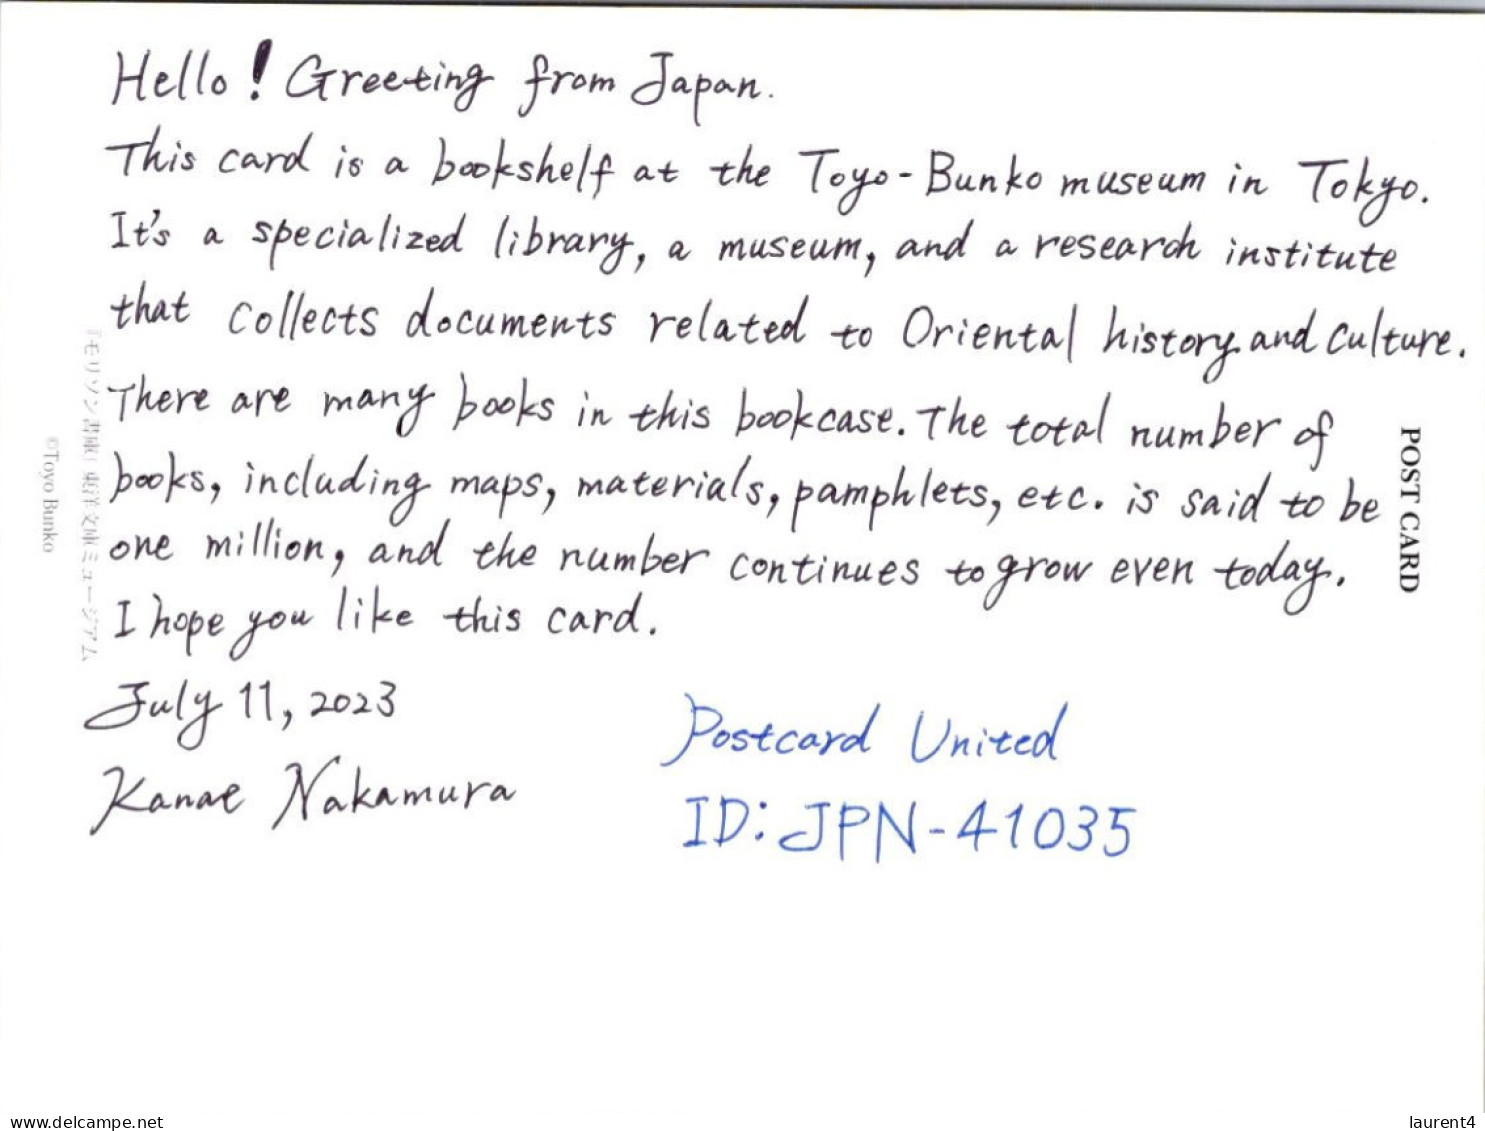 Hello! Greeting from Japan.
This card is a bookshelf at the Toyo-Bunko museum in Tokyo.
It's a specialized library, a museum, and a research institute
that collects documents related to Oriental history and culture.
There are many books in this bookcase. The total number of
books, including maps, materials, pamphlets, etc. is said to be
one million, and the number continues to grow even today.
I hope you like this card.
July 11, 2023
Kanae Nakamura
Postcard United
ID: JPN-41035
POST CARD
『モリソン書庫』東洋文庫ミュージアム
©Toyo Bunko
www.delcampe.net
laurent4